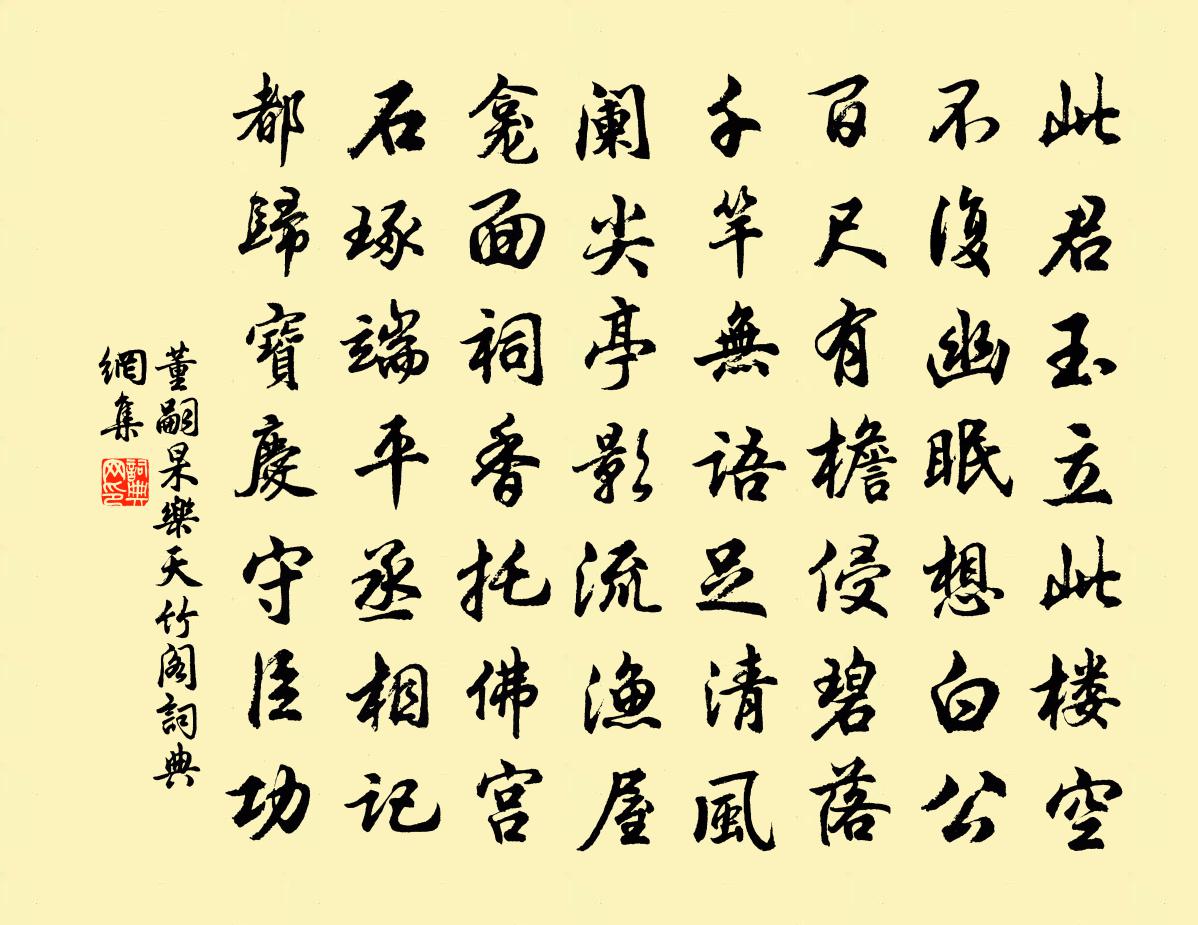 此君玉立此楼空
不復幽眠想白公
百尺有檐侵碧落
千竿無語足清風
阑尖亭影流漁屋
龛面祠香托佛宫
石琢端平丞相記
都歸寶慶守臣功
董嗣杲樂天竹阁詞典
網集
詞典
网印